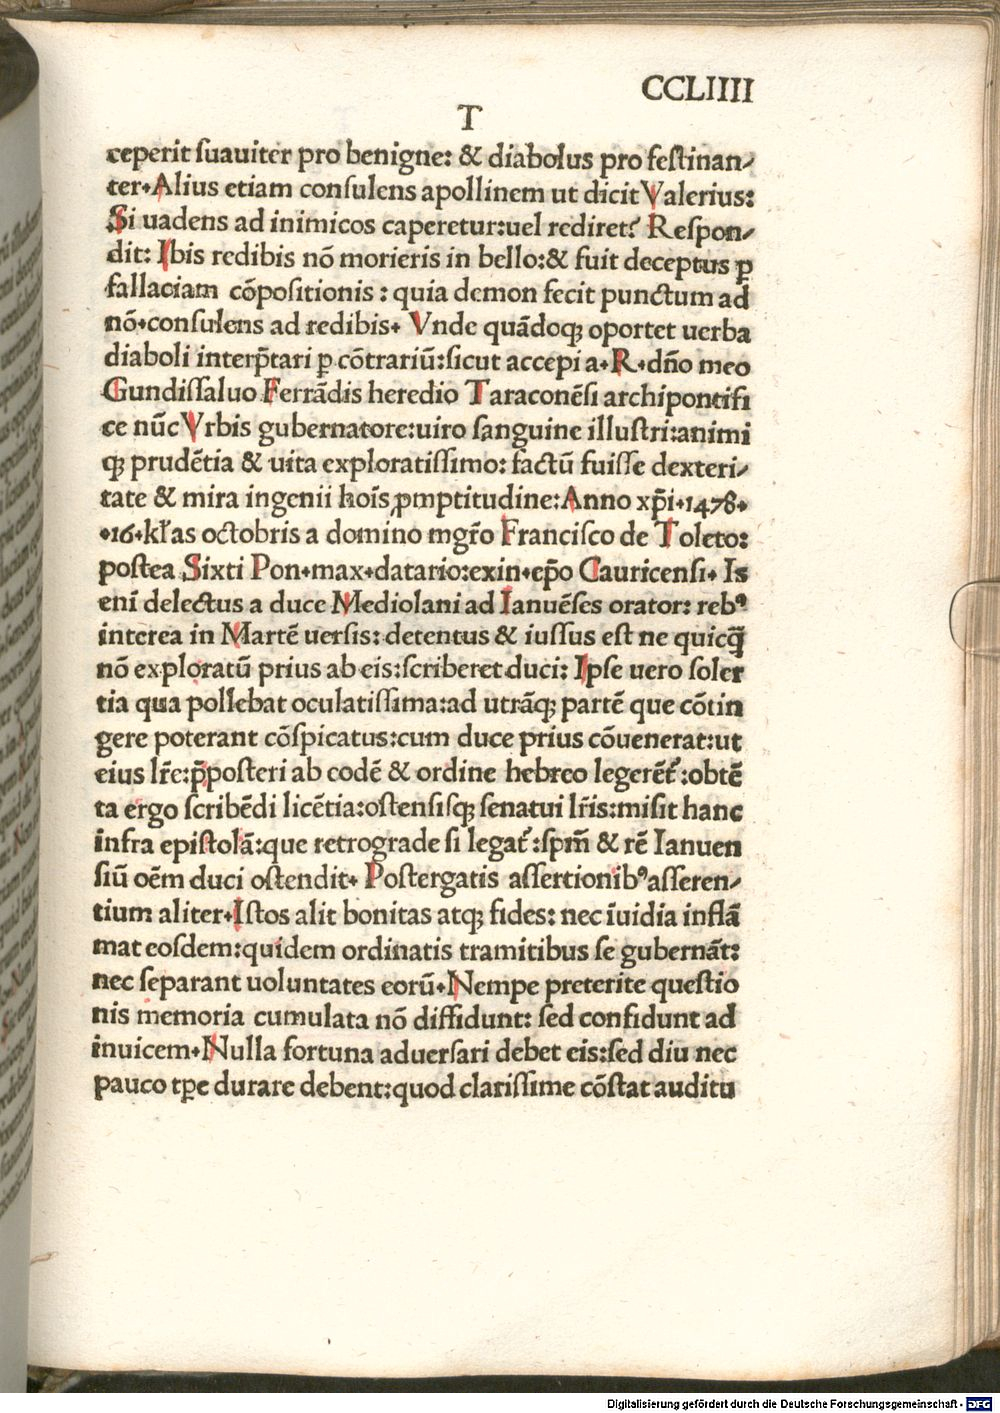 CCLIIII
T
ceperit ſuauiter pro benigne: & diabolus pro feſtinan⸗
ter.Alius etiam conſulens apollinem ut dicit Valerius:
Si uadens ad inimicos caperetur:uel rediret? Reſpon⸗
dit: Ibis redibis nō morieris in bello:& fuit deceptus ꝑ
fallaciam cōpoſitionis : quia demon fecit punctum ad
nō.conſulens ad redibis. Vnde quādoqꝫ oportet uerba
diaboli interp̄tari ꝑ cōtrariū:ſicut accepi a.R.dn̄o meo
Gundiſſaluo Ferrādis heredio Taraconēſi archipontifi
ce nūc Vrbis gubernatore:uiro ſanguine illuſtri:animi
qꝫ prudētia & uita exploratiſſimo: factū fuiſſe dexteri⸗
tate & mira ingenii hoīs ꝓmptitudine:Anno xp̄i.1478.
.16.kl̄as octobris a domino mgr̄o Franciſco de Toleto:
poſtea Sixti Pon.max.datario:exin.ep̄o Cauricenſi. Is
enī delectus a duce Mediolani ad Ianuēſes orator: rebꝰ
interea in Martē uerſis: detentus & iuſſus eſt ne quicq̄
nō exploratū prius ab eis:ſcriberet duci: Ipſe uero ſoler
tia qua pollebat oculatiſſima:ad utrāqꝫ partē que cōtin
gere poterant cōſpicatus:cum duce prius cōuenerat:ut
eius lr̄e:p̄poſteri ab codē & ordine hebreo legerēt᷑:obtē
ta ergo ſcribēdi licētia:oſtenſiſqꝫ ſenatui lr̄is:miſit hanc
infra epiſtolā:que retrograde ſi legat᷑:ſpm̄ & rē Ianuen
ſiū oēm duci oſtendit. Poſtergatis aſſertionibꝰ aſſeren⸗
tium aliter.Iſtos alit bonitas atqꝫ fides: nec īuidia inflā
mat eoſdem:quidem ordinatis tramitibus ſe gubernāt:
nec ſeparant uoluntates eorū.Nempe preterite queſtio
nis memoria cumulata nō diffidunt: ſed confidunt ad
inuicem.Nulla fortuna aduerſari debet eis:ſed diu nec
pauco tꝑe durare debent:quod clariſſime cōſtat auditu
Digitalisierung gefördert durch die Deutsche Forschungsgemeinschaft - DFG